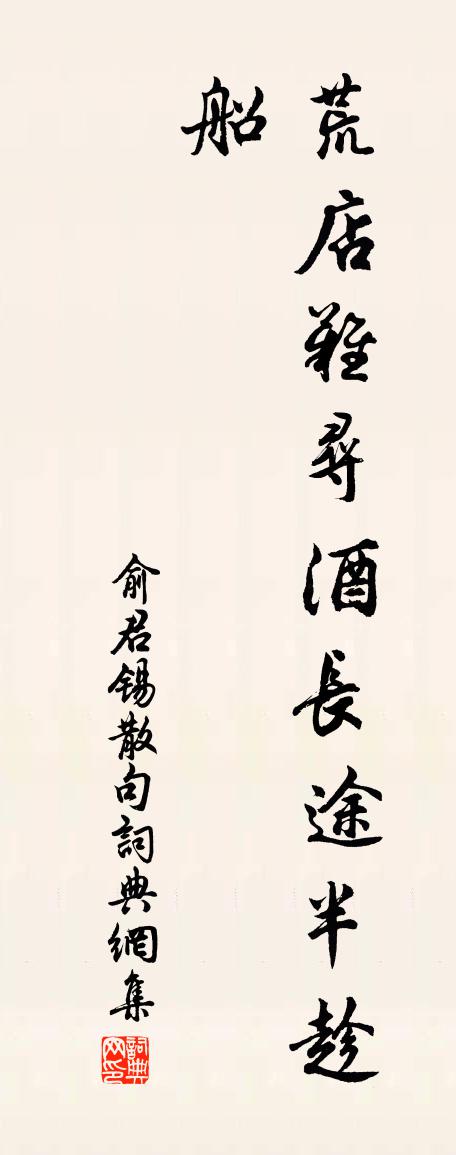 荒店難尋酒長途半趁
船
俞君錫散句詞典網集
詞典网印